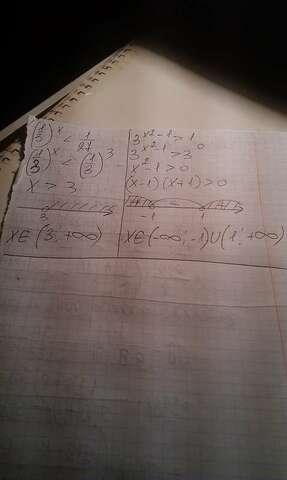 (1/3)^x < 1/27
(1/3)^x < (1/3)^3
x > 3
3
x ∈ (3; +∞)
3^(x²-1) > 1
3^(x²-1) > 3^0
x²-1 > 0
(x-1)(x+1) > 0
+ - +
-1 1
x ∈ (-∞; -1) ∪ (1; +∞)